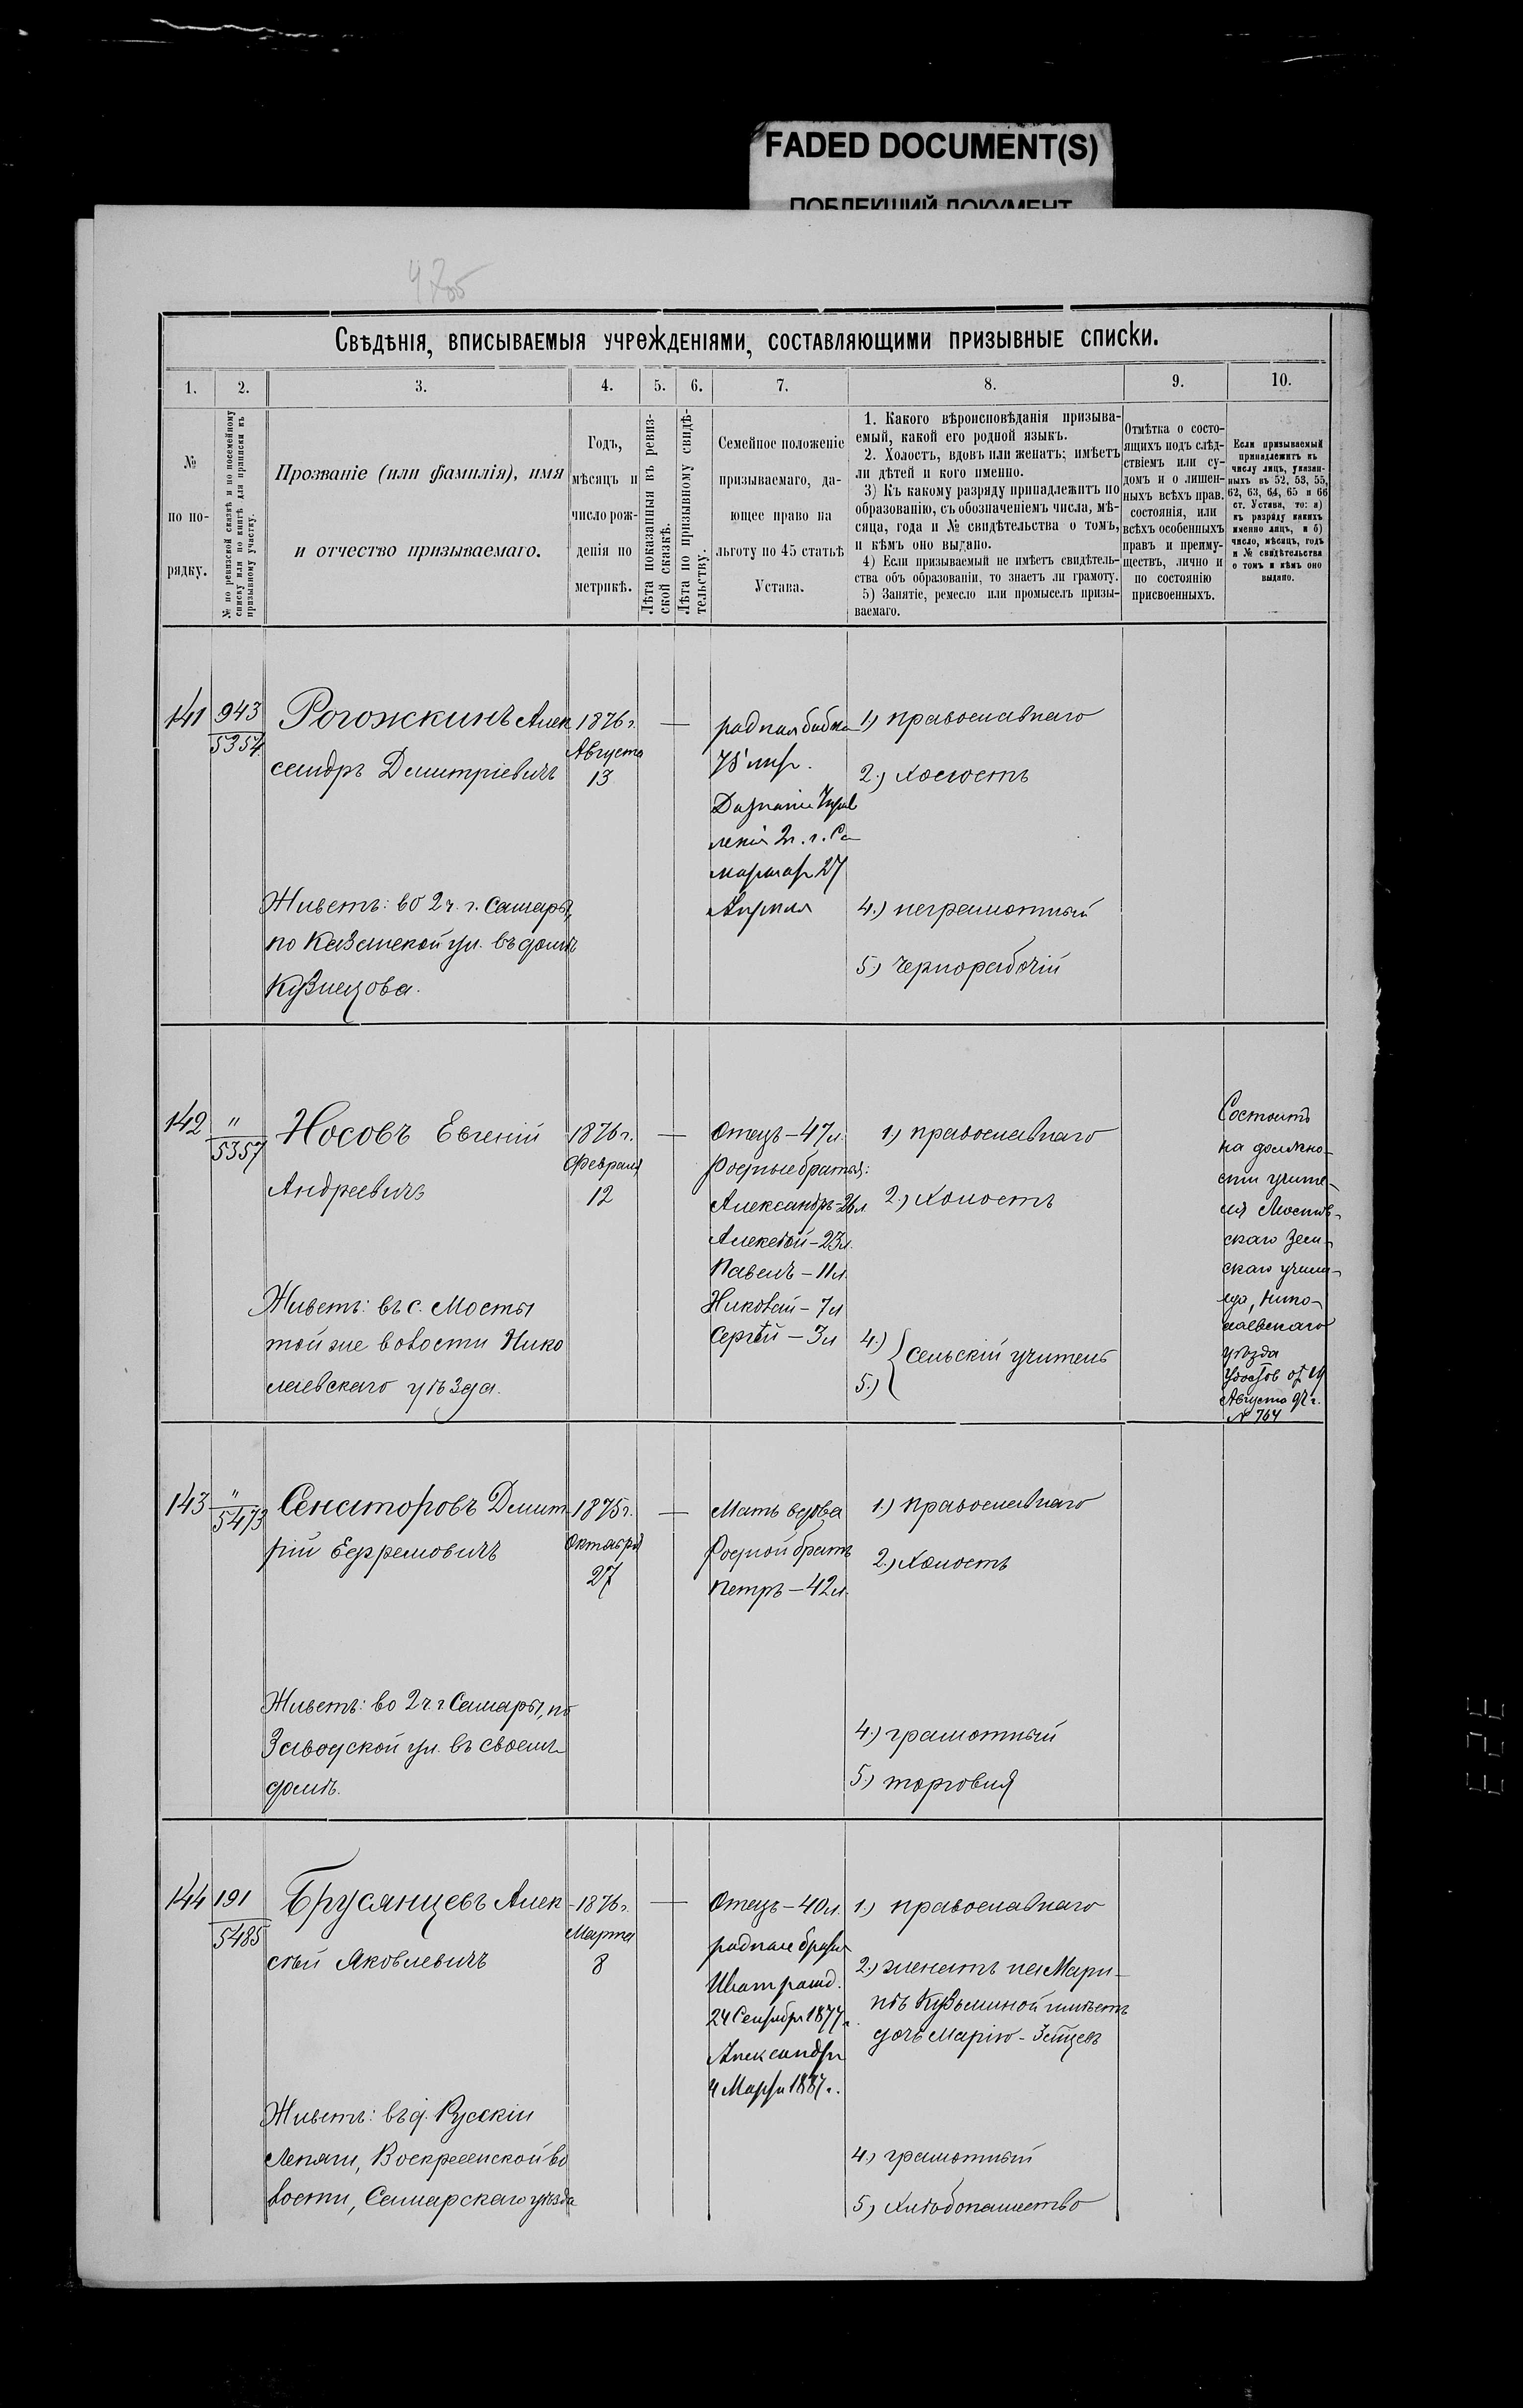 FADED DOCUMENT(S)
ПОБЛЕКШИЙ ДОКУМЕНТ
Свѣдѣнія, вписываемыя учрежденіями, составляющими призывные списки.
1. 2. 3. 4. 5. 6. 7. 8. 9. 10.
№
по по-
рядку.
№ по ревизской сказкѣ и по посемейному
списку или по книгѣ для приписки къ
призывному участку.
Прозваніе (или фамилія), имя
и отчество призываемаго.
Годъ,
мѣсяцъ и
число рож-
денія по
метрикѣ.
Лѣта показанныя въ ревиз-
ской сказкѣ.
Лѣта по призывному свидѣ-
тельству.
Семейное положеніе
призываемаго, да-
ющее право на
льготу по 45 статьѣ
Устава.
1. Какого вѣроисповѣданія призыва-
емый, какой его родной языкъ.
2. Холостъ, вдовъ или женатъ; имѣетъ
ли дѣтей и кого именно.
3) Къ какому разряду принадлежитъ по
образованію, съ обозначеніемъ числа, мѣ-
сяца, года и № свидѣтельства о томъ,
и кѣмъ оно выдано.
4) Если призываемый не имѣетъ свидѣтель-
ства объ образованіи, то знаетъ ли грамоту.
5) Занятіе, ремесло или промыселъ призы-
ваемаго.
Отмѣтка о состо-
ящихъ подъ слѣд-
ствіемъ или су-
домъ и о лишен-
ныхъ всѣхъ прав.
состоянія, или
всѣхъ особенныхъ
правъ и преиму-
ществъ, лично и
по состоянію
присвоенныхъ.
Если призываемый
принадлежитъ къ
числу лицъ, указан-
ныхъ въ 52, 53, 55,
62, 63, 64, 65 и 66
ст. Устава, то: а)
къ разряду какихъ
именно лицъ, и б)
число, мѣсяцъ, годъ
и № свидѣтельства
о томъ и кѣмъ оно
выдано.
141
943
5354
Рогожкинъ Алек
сандръ Дмитріевичъ
Живетъ: во 2 ч. г. Самары,
по Казанской ул. въ домѣ
Кузнецова.
1876 г.
Августа
13
—
родная бабка
75 лѣт.
Дознаніе Управ
ленія 2 ч. г. Са
мары от 27
Апреля
1.) православнаго
2.) холостъ
4.) неграмотный
5.) чернорабочій
142
"
5357
Носовъ Евгеній
Андреевичъ
Живетъ: въ с. Мосты
той же волости Нико
лаевскаго уѣзда.
1876 г.
Февраля
12
—
Отецъ – 47 л.
Родные братья:
Александръ – 26 л
Алексѣй – 23 л.
Павелъ – 11 л.
Николай – 7 л
Сергѣй – 3 л
1.) православнаго
2.) холостъ
4.)
5.) { сельскій учитель
Состоитъ
на должно-
сти учите-
ля Мостов-
скаго Зем-
скаго учили-
ща, Нико-
лаевскаго
уѣзда
Удостов от 19
Августа 97 г.
№ 764
143
"
5473
Сенаторовъ Димит
рій Ефремовичъ
Живетъ: во 2 ч. г. Самары, по
Заводской ул. въ своемъ
домѣ.
1875 г.
Октября
27
—
Мать вдова
Родной братъ
Петръ – 42 л.
1.) православнаго
2.) холостъ
4.) грамотный
5.) торговля
144
191
5485
Брусянцевъ Алек
сѣй Яковлевичъ
Живетъ: въ д. Русскіи
Липяги, Воскресенской во
лости, Самарскаго уѣзда
1876 г.
Марта
8
—
Отецъ – 40 л.
родные братья
Иван рожд.
24 Сентября 1877 г.
Александръ
4 Марта 1887 г.
1.) православнаго
2.) женатъ на Мари-
нѣ Кузьминой имѣетъ
дочь Марію –
4.) грамотный
5.) хлѣбопашество